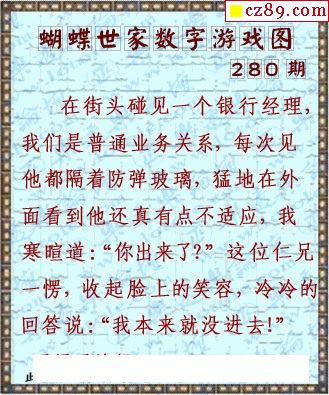 cz89.com
蝴蝶世家数字游戏图
280 期
在街头碰见一个银行经理,
我们是普通业务关系, 每次见
他都隔着防弹玻璃, 猛地在外
面看到他还真有点不适应, 我
寒暄道:“你出来了?” 这位仁兄
一愣, 收起脸上的笑容, 冷冷的
回答说:“我本来就没进去!”